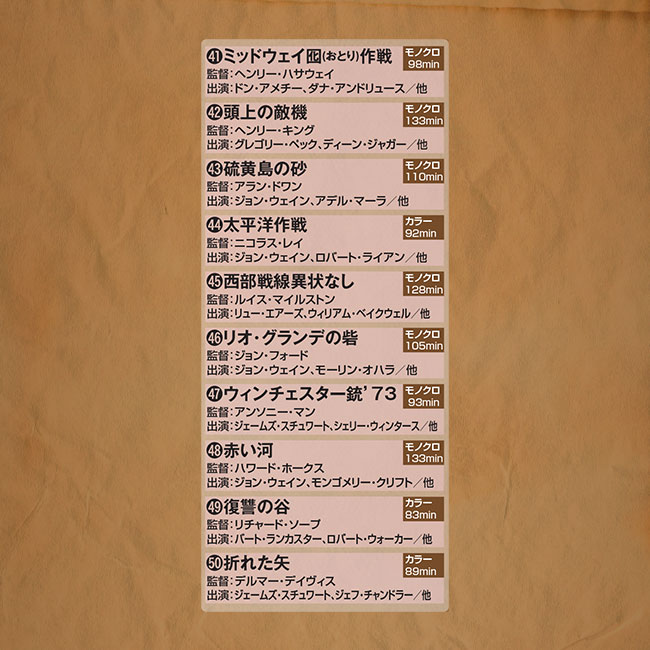 ㊶ミッドウェイ囮(おとり)作戦 モノクロ 98min
監督：ヘンリー・ハサウェイ
出演：ドン・アメチー、ダナ・アンドリュース／他
㊷頭上の敵機 モノクロ 133min
監督：ヘンリー・キング
出演：グレゴリー・ペック、ディーン・ジャガー／他
㊸硫黄島の砂 モノクロ 110min
監督：アラン・ドワン
出演：ジョン・ウェイン、アデル・マーラ／他
㊹太平洋作戦 カラー 92min
監督：ニコラス・レイ
出演：ジョン・ウェイン、ロバート・ライアン／他
㊺西部戦線異状なし モノクロ 128min
監督：ルイス・マイルストン
出演：リュー・エアーズ、ウィリアム・ベイクウェル／他
㊻リオ・グランデの砦 モノクロ 105min
監督：ジョン・フォード
出演：ジョン・ウェイン、モーリン・オハラ／他
㊼ウィンチェスター銃'73 モノクロ 93min
監督：アンソニー・マン
出演：ジェームズ・スチュワート、シェリー・ウィンタース／他
㊽赤い河 モノクロ 133min
監督：ハワード・ホークス
出演：ジョン・ウェイン、モンゴメリー・クリフト／他
㊾復讐の谷 カラー 83min
監督：リチャード・ソープ
出演：バート・ランカスター、ロバート・ウォーカー／他
㊿折れた矢 カラー 89min
監督：デルマー・デイヴィス
出演：ジェームズ・スチュワート、ジェフ・チャンドラー／他